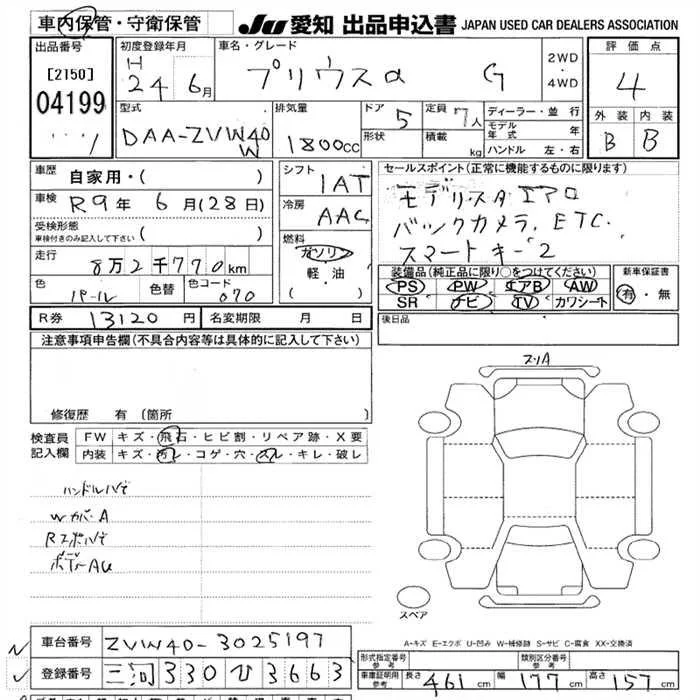 車内保管・守衛保管
JU 愛知 出品申込書 JAPAN USED CAR DEALERS ASSOCIATION
出品番号 初度登録年月 車名・グレード 2WD・4WD 評価点
[2150] H 24年 6月 プリウスα G 4
04199 型式 排気量 ドア 5 定員 7人 ディーラー・並行 外装 内装
DAA-ZVW40W 1800CC 形状 積載 kg モデル年式 年 B B
ハンドル 左・右
車歴 自家用・( ) シフト 1AT セールスポイント(正常に機能するものに限ります)
車検 R9年 6月(28日) 冷房 AAC モデリスタエアロ
受検形態 車検付きのみ記入して下さい ( ) バックカメラ, ETC.
走行 8万2千770km 燃料 ガソリン スマートキー2
軽・油 ( )
色 パール 色替 色コード 070
装備品(純正品に限り○をつけてください) 新車保証書
PS PW エアB AW 有・無
SR ナビ TV カワシート
R券 13120円 名変期限 月 日 後日品
注意事項申告欄(不具合内容等は具体的に記入して下さい)
修復歴 有(箇所
検査員記入欄 FW キズ・飛石・ヒビ割・リペア跡・X要
内装 キズ・汚レ・コゲ・穴・スレ・キレ・破レ
ハンドルハゲ
Wカバ-A
スペア
A-キズ E-エクボ U-凹み W-補修跡 S-サビ C-腐食 XX-交換済
車台番号 ZVW40-3025197
登録番号 三河 330 ひ 3663
形式指定番号 参考 類別区分番号 参考
車証明用参考 長さ 461cm 幅 177cm 高さ 157cm